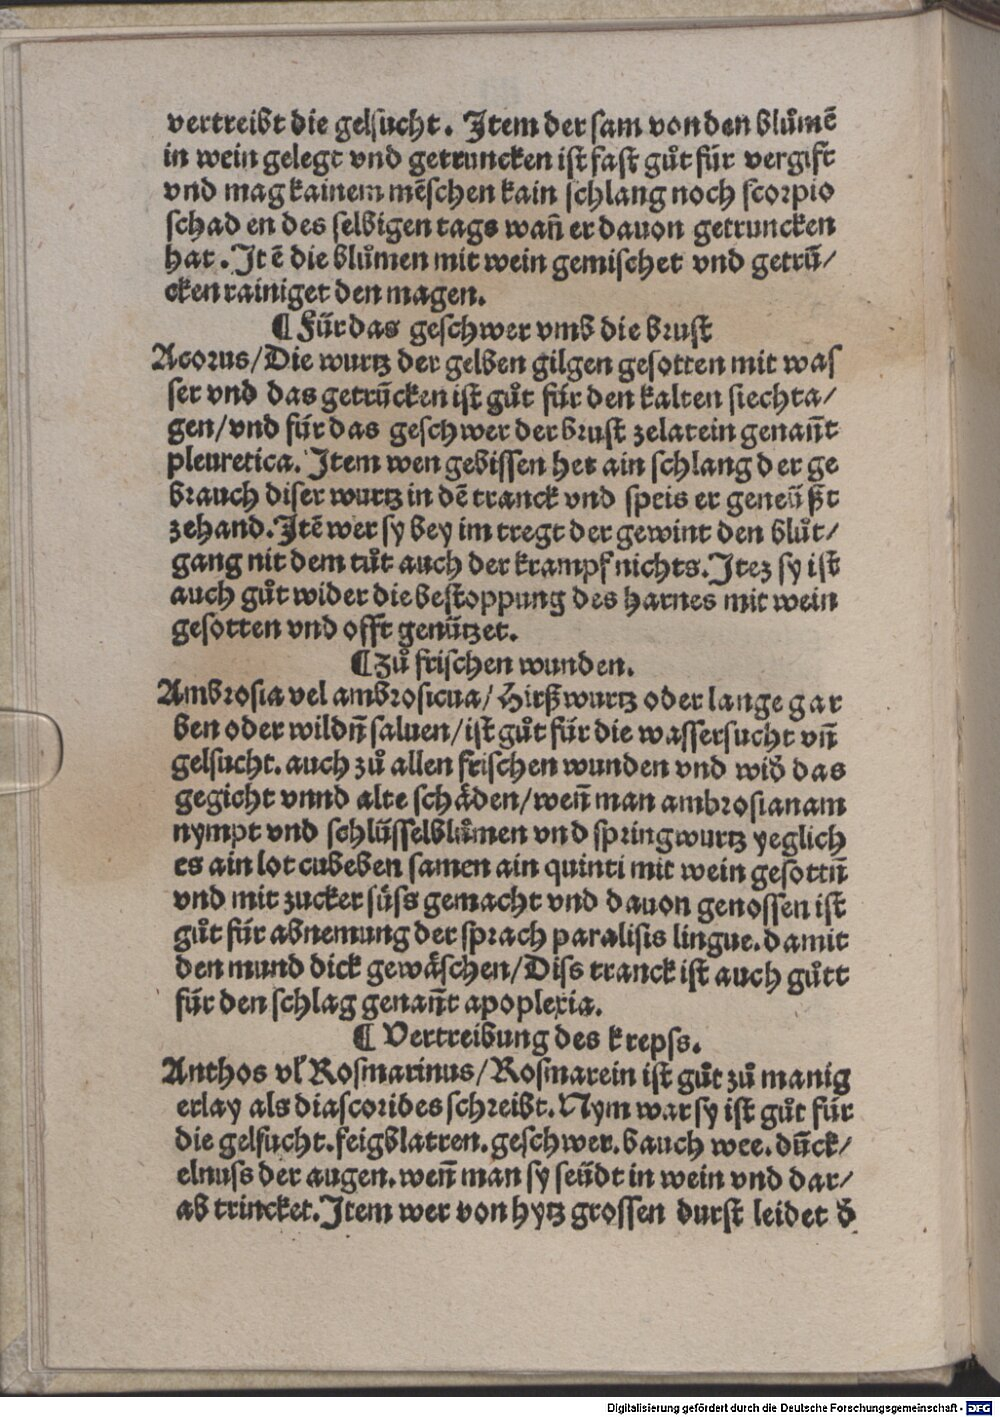 vertreibt die gelsucht. Item der sam von den blůmē
in wein gelegt vnd getruncken ist fast gůt für vergift
vnd mag kainem mēschen kain schlang noch scorpio
schad en des selbigen tags wañ er dauon getruncken
hat. Itē die blůmen mit wein gemischet vnd getrū/
cken rainiget den magen.
¶ Für das geschwer vmb die brust
Acorus/Die wurtz der gelben gilgen gesotten mit was
ser vnd das getrūcken ist gůt für den kalten siechta/
gen/vnd für das geschwer der brust zelatein genañt
pleuretica. Item wen gebissen het ain schlang der ge
brauch diser wurtz in dē tranck vnd speis er geneüßt
zehand. Itē wer sy bey im tregt der gewint den blůt/
gang nit dem tůt auch der krampf nichts. Itez sy ist
auch gůt wider die bestoppung des harnes mit wein
gesotten vnd offt genützet.
¶ Zů frischen wunden.
Ambrosia vel ambrosicua/Hirßwurtz oder lange gar
ben oder wildn̄ saluen/ist gůt für die wassersucht vn̄
gelsucht. auch zů allen frischen wunden vnd wid̄ das
gegicht vnnd alte schäden/wen̄ man ambrosianam
nympt vnd schlüsselblůmen vnd springwurtz yeglich
es ain lot cubeben samen ain quinti mit wein gesottn̄
vnd mit zucker süss gemacht vnd dauon genossen ist
gůt für abnemung der sprach paralisis lingue. damit
den mund dick gewäschen/Diss tranck ist auch gůtt
für den schlag genañt apoplexia.
¶ Vertreibung des kreps.
Anthos vł Rosmarinus/Rosmarein ist gůt zů manig
erlay als diascorides schreibt. Nym war sy ist gůt für
die gelsucht. feigblatren. geschwer. bauch wee. dūck/
elnuss der augen. wen̄ man sy seüdt in wein vnd dar/
ab trincket. Item wer von hytz grossen durst leidet d̄
Digitalisierung gefördert durch die Deutsche Forschungsgemeinschaft - DFG